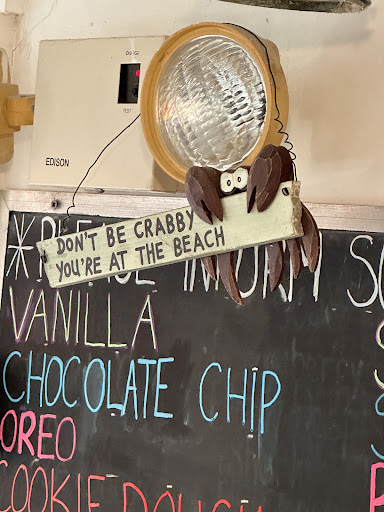 CHARGE
TEST
EDISON
DON'T BE CRABBY
YOU'RE AT THE BEACH
VANILLA
CHOCOLATE CHIP
OREO
COOKIE DOUGH